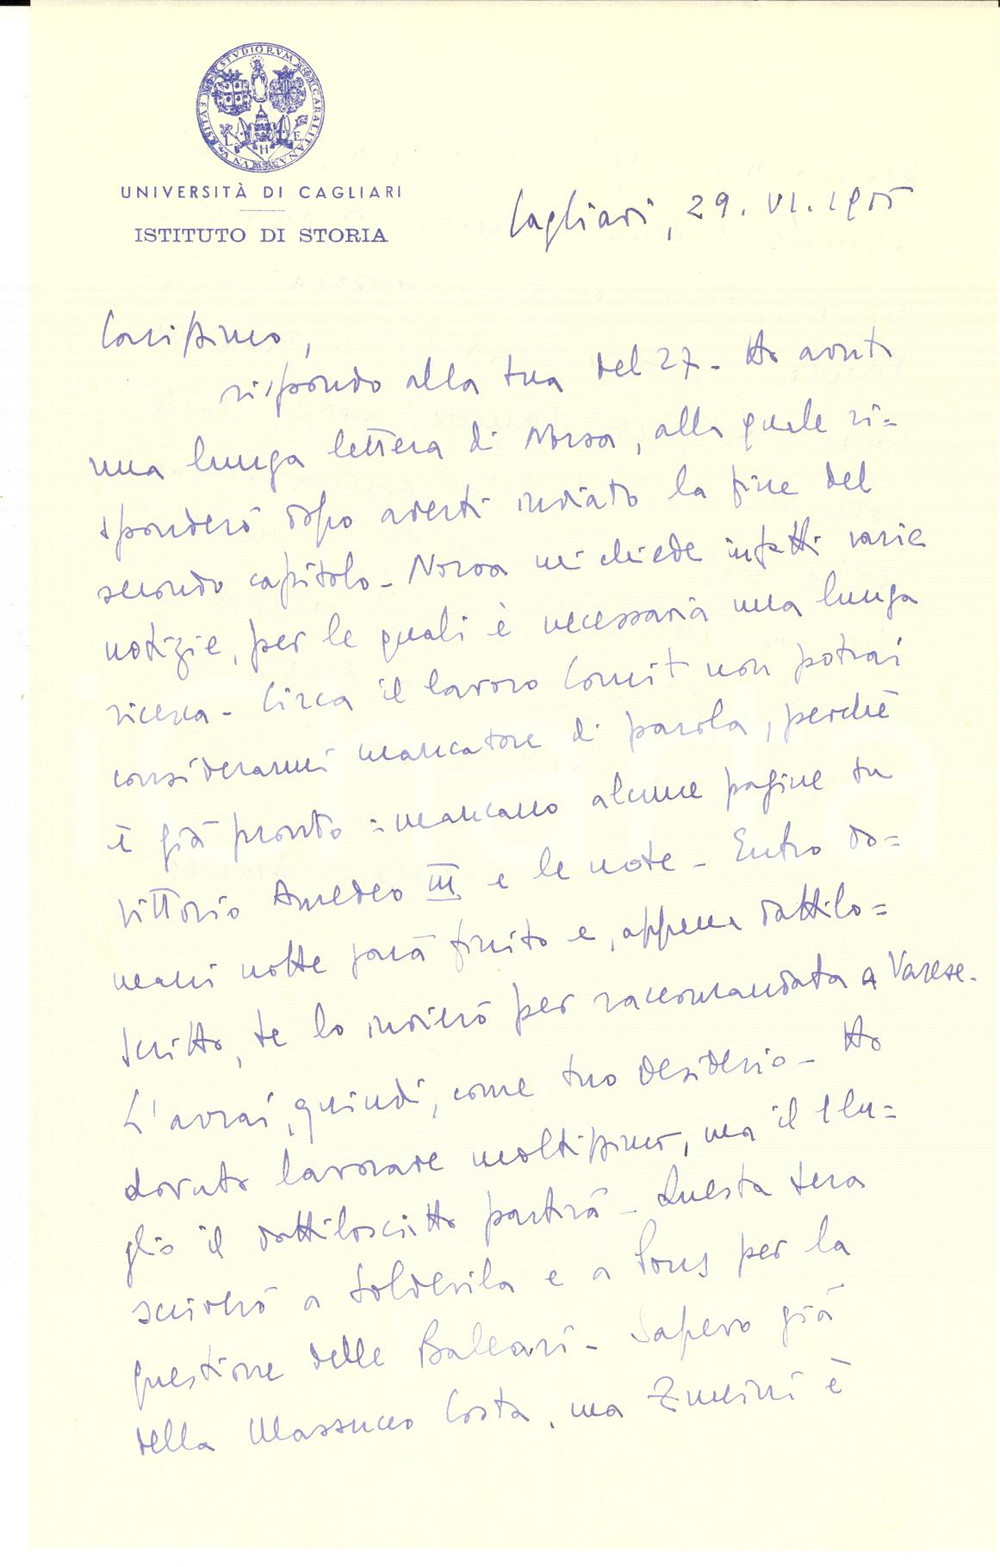 UNIVERSITÀ DI CAGLIARI
ISTITUTO DI STORIA
Cagliari, 29. VI. 1955
Carissimo,
rispondo alla tua del 27 - Ho avuto
una lunga lettera di Norsa, alla quale ri=
sponderò dopo averti inviato la fine del
secondo capitolo - Norsa mi chiede infatti varie
notizie, per le quali è necessaria una lunga
ricerca - Circa il lavoro Comit non potrai
considerarmi mancatore di parola, perchè
è già pronto: mancano alcune pagine su
Vittorio Amedeo III e le note - Entro do=
mani notte sarà finito e, appena dattilo=
scritto, te lo invierò per raccomandata a Varese.
L'avrai, quindi, come tuo desiderio - Ho
dovuto lavorare moltissimo, ma il 1 lu=
glio il dattiloscritto partirà - Questa sera
scriverò a Soldevila e a Pons per la
questione delle Baleari - Sapevo già
della Massucco Costa, ma è